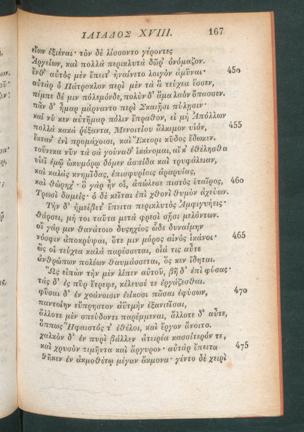 ΙΛΙΑΔΟΣ XVIII. 167
εἴων ἐξιέναι· τὸν δὲ λίσσοντο γέροντες
Ἀργείων, καὶ πολλὰ περικλυτὰ δῶρ' ὀνόμαζον.
ἔνθ' αὐτὸς μὲν ἔπειτ' ἠναίνετο λοιγὸν ἀμῦναι· 450
αὐτὰρ ὁ Πάτροκλον περὶ μὲν τὰ ἃ τεύχεα ἕσσεν,
πέμπε δέ μιν πόλεμόνδε, πολὺν δ' ἅμα λαὸν ὄπασσεν.
πᾶν δ' ἦμαρ μάρναντο περὶ Σκαιῇσι πύλῃσιν·
καί νύ κεν αὐτῆμαρ πόλιν ἔπραθον, εἰ μὴ Ἀπόλλων
πολλὰ κακὰ ῥέξαντα, Μενοιτίου ἄλκιμον υἱόν, 455
ἔκταν' ἐνὶ προμάχοισι, καὶ Ἕκτορι κῦδος ἔδωκεν.
τοὔνεκα νῦν τὰ σὰ γούναθ' ἱκάνομαι, αἴ κ' ἐθέλῃσθα
υἱεῖ ἐμῷ ὠκυμόρῳ δόμεν ἀσπίδα καὶ τρυφάλειαν,
καὶ καλὰς κνημῖδας, ἐπισφυρίοις ἀραρυίας,
καὶ θώρηχ'· ὃ γὰρ ἦν οἱ, ἀπώλεσε πιστὸς ἑταῖρος, 460
Τρωσὶ δαμείς· ὁ δὲ κεῖται ἐπὶ χθονὶ θυμὸν ἀχεύων.
Τὴν δ' ἠμείβετ' ἔπειτα περικλυτὸς Ἀμφιγυήεις·
θάρσει, μή τοι ταῦτα μετὰ φρεσὶ σῇσι μελόντων.
αἲ γάρ μιν θανάτοιο δυσηχέος ὧδε δυναίμην
νόσφιν ἀποκρύψαι, ὅτε μιν μόρος αἰνὸς ἱκάνοι· 465
ὥς οἱ τεύχεα καλὰ παρέσσεται, οἷά τις αὖτε
ἀνθρώπων πολέων θαυμάσσεται, ὅς κεν ἴδηται.
Ὣς εἰπὼν τὴν μὲν λίπεν αὐτοῦ, βῆ δ' ἐπὶ φύσας·
τὰς δ' ἐς πῦρ ἔτρεψε, κέλευσέ τε ἐργάζεσθαι.
φῦσαι δ' ἐν χοάνοισιν ἐείκοσι πᾶσαι ἐφύσων, 470
παντοίην εὔπρηστον ἀϋτμὴν ἐξανιεῖσαι,
ἄλλοτε μὲν σπεύδοντι παρέμμεναι, ἄλλοτε δ' αὖτε,
ὅππως Ἥφαιστός τ' ἐθέλοι, καὶ ἔργον ἄνοιτο.
χαλκὸν δ' ἐν πυρὶ βάλλεν ἀτειρέα κασσίτερόν τε,
καὶ χρυσὸν τιμῆντα καὶ ἄργυρον· αὐτὰρ ἔπειτα 475
θῆκεν ἐν ἀκμοθέτῳ μέγαν ἄκμονα· γέντο δὲ χειρὶ